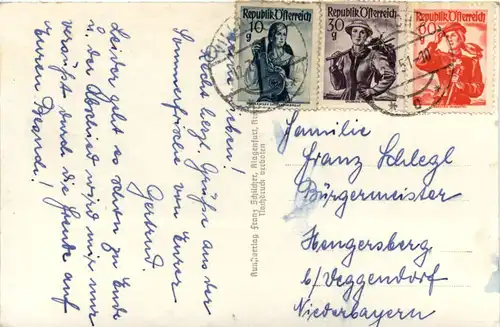 Meine Lieben!
Recht herzl. Grüße aus der
Sommerfrische von Eurer
Gertrud.
Leider geht es schon zu Ende
u. der Abschied wird mir nur
versüßt durch die Freude auf
Euren Brandi!
Kunstverlag Franz Schilcher, Klagenfurt,
Nachdruck verboten
Republik Österreich
10
g
Republik Österreich
30
g
Republik Österreich
60
g
51-20
Familie
Franz Schlegl
Bürgermeister
Hengersberg
b/Deggendorf
Niederbayern